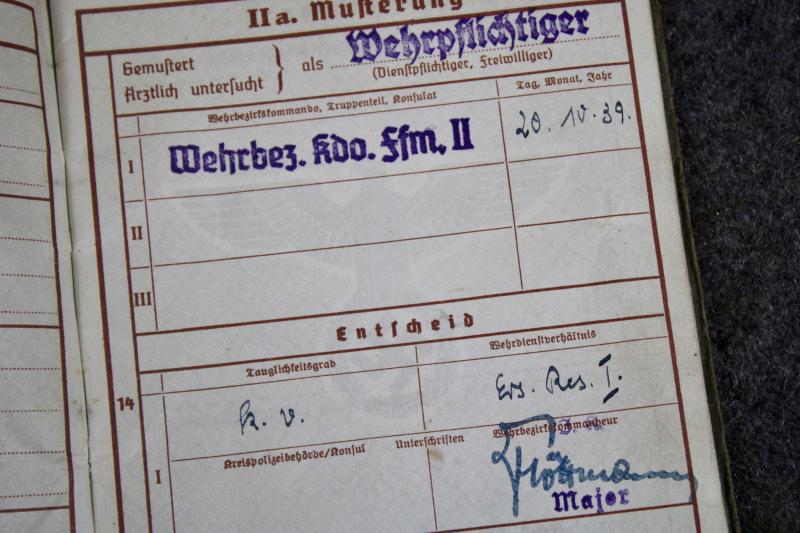 IIa. Musterung
Gemustert
Ärztlich untersucht
als Wehrpflichtiger
(Dienstpflichtiger, Freiwilliger)
Wehrbezirkskommando, Truppenteil, Konsulat
Tag, Monat, Jahr
I
Wehrbez. Kdo. Ffm. II
20. IV. 39.
II
III
Entscheid
Tauglichkeitsgrad
Wehrdienstverhältnis
14
k. v.
Ers. Res. I.
Kreispolizeibehörde/Konsul
Unterschriften
Wehrbezirkskommandeur
I
Major